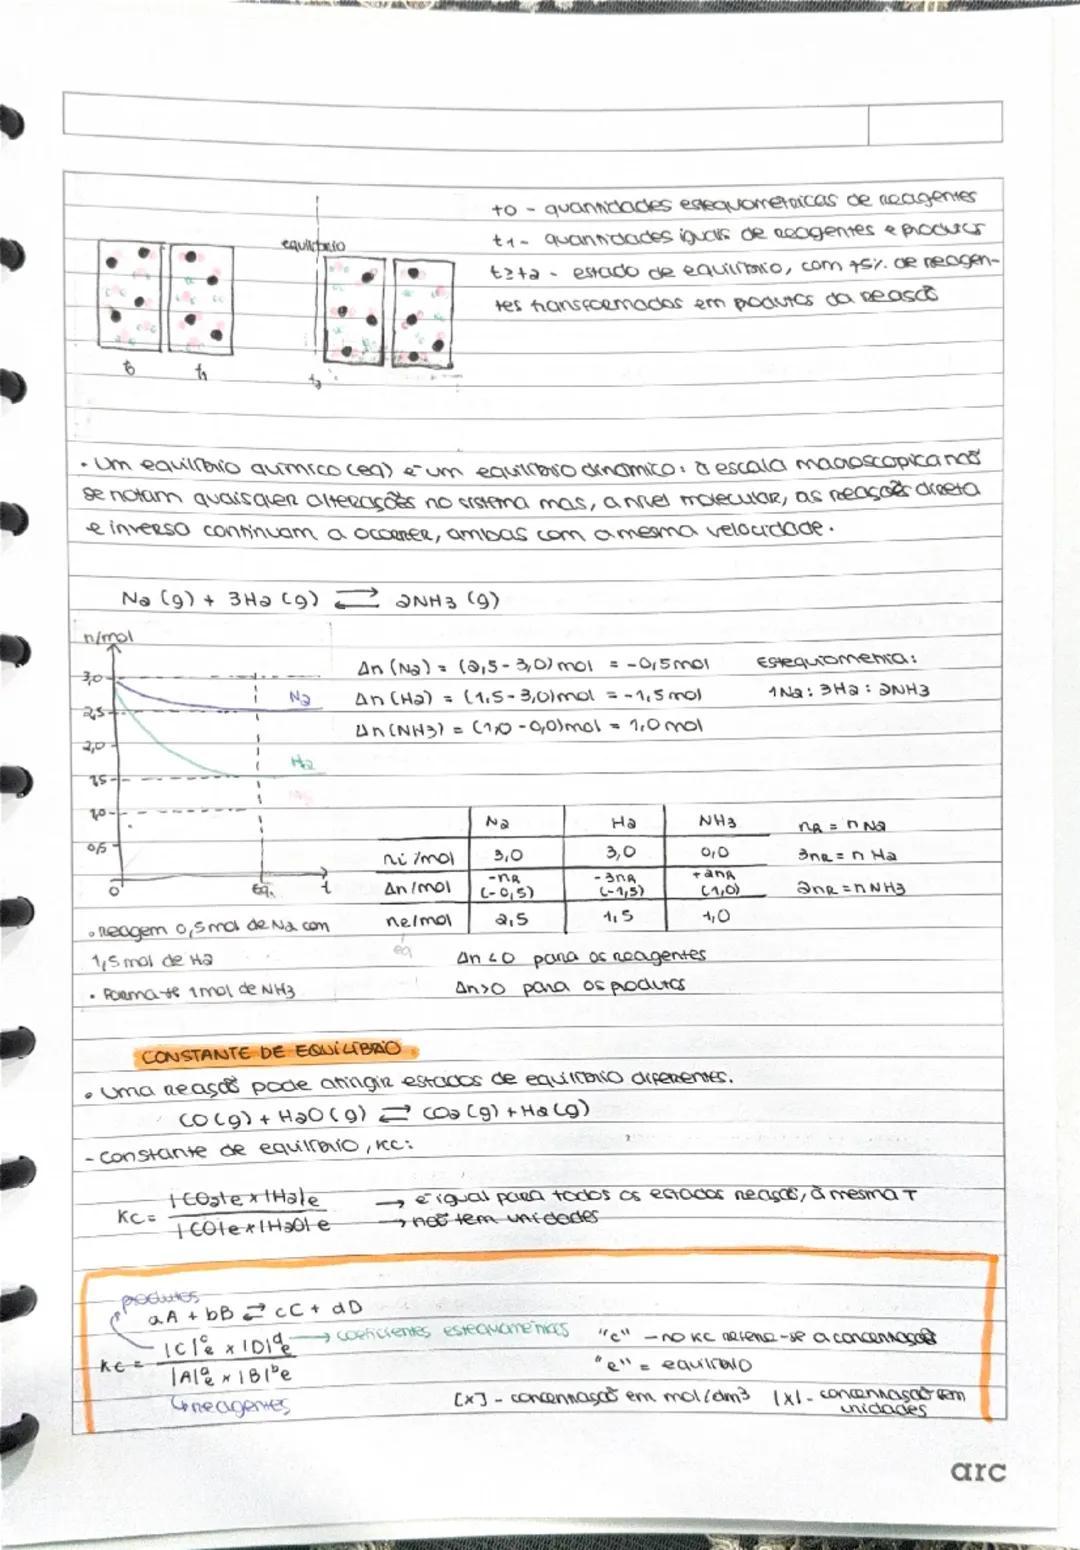 t0 - quantidades estequiometricas de reagentes
t1 - quantidades iguais de reagentes e produtos
t≥t2 - estado de equilíbrio, com 75% de reagen-
tes transformados em produtos da reação
equilíbrio
t0 t1 t2
• Um equilíbrio químico (eq) é um equilíbrio dinâmico: à escala macroscopica não
se notam quaisquer alterações no sistema mas, a nível molecular, as reações direta
e inverso continuam a ocorrer, ambas com a mesma velocidade.
N2 (g) + 3H2 (g) ⇄ 2NH3 (g)
n/mol
3,0
2,5
2,0
1,5
1,0
0,5
0
Eq.
t
N2
H2
NH3
Δn (N2) = (2,5-3,0) mol = -0,5 mol
Δn (H2) = (1,5-3,0) mol = -1,5 mol
Δn (NH3) = (1,0-0,0) mol = 1,0 mol
Estequiometria:
1N2 : 3H2 : 2NH3
N2 H2 NH3
ni /mol 3,0 3,0 0,0
Δn/mol -nR (-0,5) -3nR (-1,5) +2nR (1,0)
ne/mol 2,5 1,5 1,0
eq
nR = n N2
3nR = n H2
2nR = n NH3
• Reagem 0,5 mol de N2 com
1,5 mol de H2
• Forma-se 1 mol de NH3
Δn <0 para os reagentes
Δn>0 para os produtos
CONSTANTE DE EQUILÍBRIO
• Uma reação pode atingir estados de equilíbrio diferentes.
CO (g) + H2O (g) ⇄ CO2 (g) + H2 (g)
- Constante de equilíbrio, Kc:
Kc = |CO2|e x |H2|e / |CO|e x |H2O|e
→ é igual para todos os estados reação, à mesma T
→ não tem unidades
produtos
aA + bB ⇄ cC + dD
Kc = |C|ᶜe x |D|ᵈe / |A|ᵃe x |B|ᵇe
→ coeficientes estequiométricos
↳ reagentes
"c" - no Kc refere-se a concentração
"e" = equilíbrio
[x] - concentração em mol/dm³ |x| - concentração sem
unidades
arc